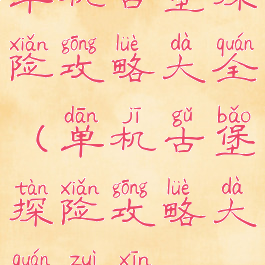 xiǎn gōng lüè dà quán
险攻略大全
dān jī gǔ bǎo
（单机古堡
tàn xiǎn gōng lüè dà
探险攻略大
quán zuì xīn